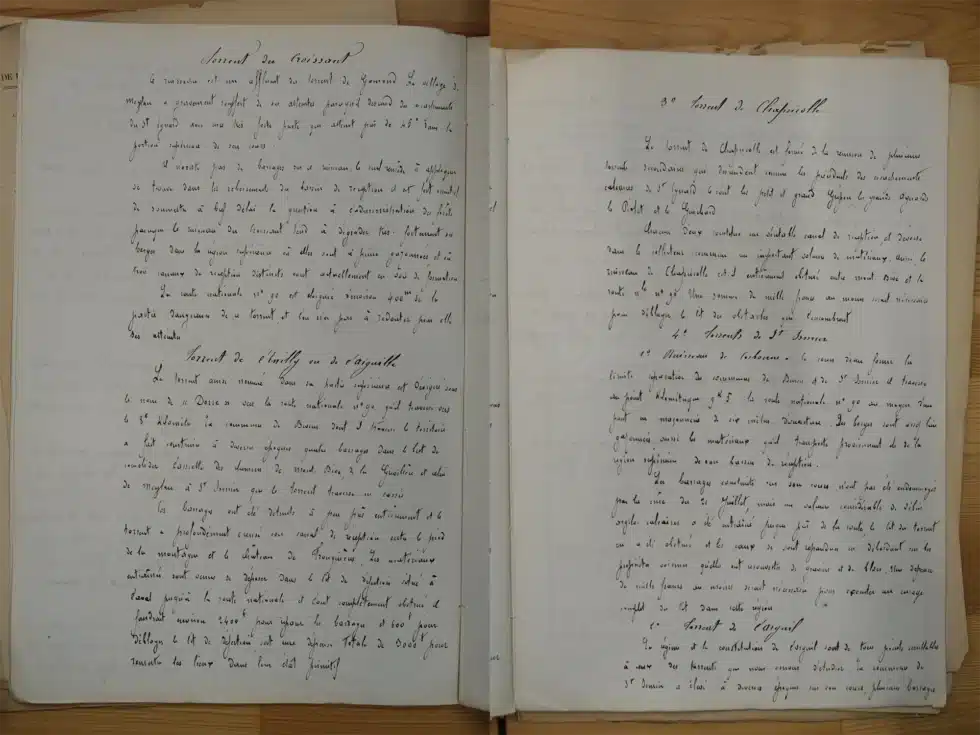 Torrent du Croissant
Ce ruisseau est un affluent du torrent de Gamond Le village de
Meylan a gravement souffert de ses atteintes parce qu'il descend des escarpements
du St Eynard avec une très forte pente qui atteint près de 45° dans la
portion supérieure de son cours
Il n'existe pas de barrages sur ce ruisseau le seul remède à appliquer
se trouve dans le reboisement du bassin de réception et il est
de soumettre à bref délai la question à l'administration des forêts
parce que le ruisseau du Croissant tend à dégrader très fortement ses
berges dans la région supérieure où elles sont à peine gazonnées et où
trois canaux de réception distincts sont actuellement en voie de formation
La route nationale n° 90 est éloignée d'environ 400m de la
partie dangereuse de ce torrent et l'on n'a pas à redouter pour elle
ses atteintes
Torrent de l'Aiguille
Le torrent ainsi nommé dans sa partie supérieure est désigné sous
le nom de sur la route nationale n° 90 qu'il traverse vers
le 8e kilomètre La commune de Biviers dont il traverse le territoire
a fait construire à diverses époques quatre barrages dans le but de
consolider l'assiette des chemins de Mont Bives, de la et celui
de Meylan à St Ismier que le torrent traverse en cassis
Ces barrages ont été détruits à peu près entièrement et le
torrent a profondément creusé son canal de réception entre le pied
de la montagne et le château de Les matériaux
entraînés sont venus se déposer dans le lit de déjection situé à
l'aval jusqu'à la route nationale et l'ont complètement obstrué il
faudrait environ 2400f pour réparer les barrages et 600f pour
déblayer le lit de déjection soit une dépense totale de 3000f pour
remettre les lieux dans leur état primitif
3° Torrent de Chapucolle
Le torrent de Chapucolle est formé de la réunion de plusieurs
torrents secondaires qui descendent comme les précédents des escarpements
calcaires de St Eynard ce sont les petit et grand
le et le Guichard
Chacun d'eux constitue un véritable canal de réception et déverse
dans le collecteur commun un important volume de matériaux. aussi le
ruisseau de Chapucolle est-il entièrement obstrué entre Mont Bives et la
route nle n° 90 Une somme de mille francs au moins serait nécessaire
pour déblayer le lit des obstacles qui l'encombrent
4° Torrents de St Ismier
1° Ruisseau de Corbonne - Ce cours d'eau forme la
limite séparative des communes de Biviers et de St Ismier et traverse
au point kilométrique 9k 5 la route nationale n° 90 au moyen d'un
pont en maçonnerie de six mètres d'ouverture. Ses berges sont assez bien
gazonnées aussi les matériaux qu'il transporte proviennent-ils de la
région supérieure de son bassin de réception.
Les barrages construits sur son cours n'ont pas été endommagés
par la crue du 21 Juillet, mais un volume considérable de débris
argilo calcaires a été entraîné jusque près de la route, le lit du torrent
en a été obstrué et les eaux se sont répandues en débordant sur les
propriétés voisines qu'elles ont recouvertes de graviers et de blocs. Une dépense
de mille francs au moins serait nécessaire pour exécuter un curage
complet du lit dans cette région
2° Torrent de l'Argent
Le régime et la constitution de l'argent sont de tous points semblables
à ceux des torrents que nous venons d'étudier. La commune de
St Ismier a élevé à diverses époques sur son cours, plusieurs barrages